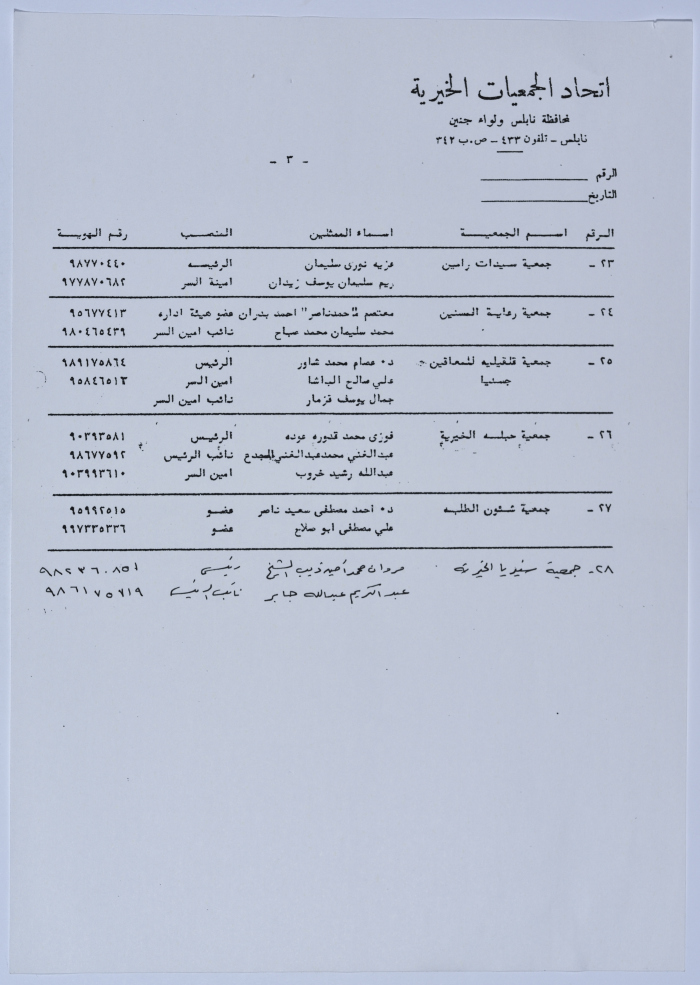 اتحاد الجمعيات الخيرية
لمحافظة نابلس ولواء جنين
نابلس - تلفون ٤٣٣ - ص.ب ٣٤٢
- ٣ -
الرقم
التاريخ
الرقم اسم الجمعية اسماء الممثلين المنصب رقم الهوية
٢٣- جمعية سيدات رامين عزيه نورى سليمان الرئيسه ٩٨٧٧٠٤٤٠
ريم سليمان يوسف زيدان امينة السر ٩٧٧٨٧٠٦٨٢
٢٤- جمعية رعاية المسنين معتصم "احمدناصر" احمد بدران عضو هيئة اداره ٩٥٦٧٧٤١٣
محمد سليمان محمد صباح نائب امين السر ٩٨٠٤٦٥٤٣٩
٢٥- جمعية قلقيليه للمعاقين د٠ عصام محمد شاور الرئيس ٩٨٩١٧٥٨٦٤
جسديا علي صالح الباشا امين السر ٩٥٨٤٦٥١٣
جمال يوسف قزمار نائب امين السر
٢٦- جمعية حبله الخيرية فوزى محمد قدوره عوده الرئيس ٩٠٣٩٣٥٨١
عبدالغني محمدعبدالغني المجدع نائب الرئيس ٩٨٦٧٧٥٩٢
عبدالله رشيد خروب امين السر ٩٠٣٩٩٣٦١٠
٢٧- جمعية شئون الطلبه د٠ احمد مصطفى سعيد ناصر عضو ٩٥٩٩٢٥١٥
علي مصطفى ابو صلاح عضو ٩٩٧٣٣٥٣٣٦
٢٨- جمعية سنيريا الخيرية مروان محمد أمين ذيب الشيخ رئيس ٩٨٢٣٦٠٨٥١
عبد الكريم عبدالله جابر نائب الرئيس ٩٨٦١٧٥٦١٩